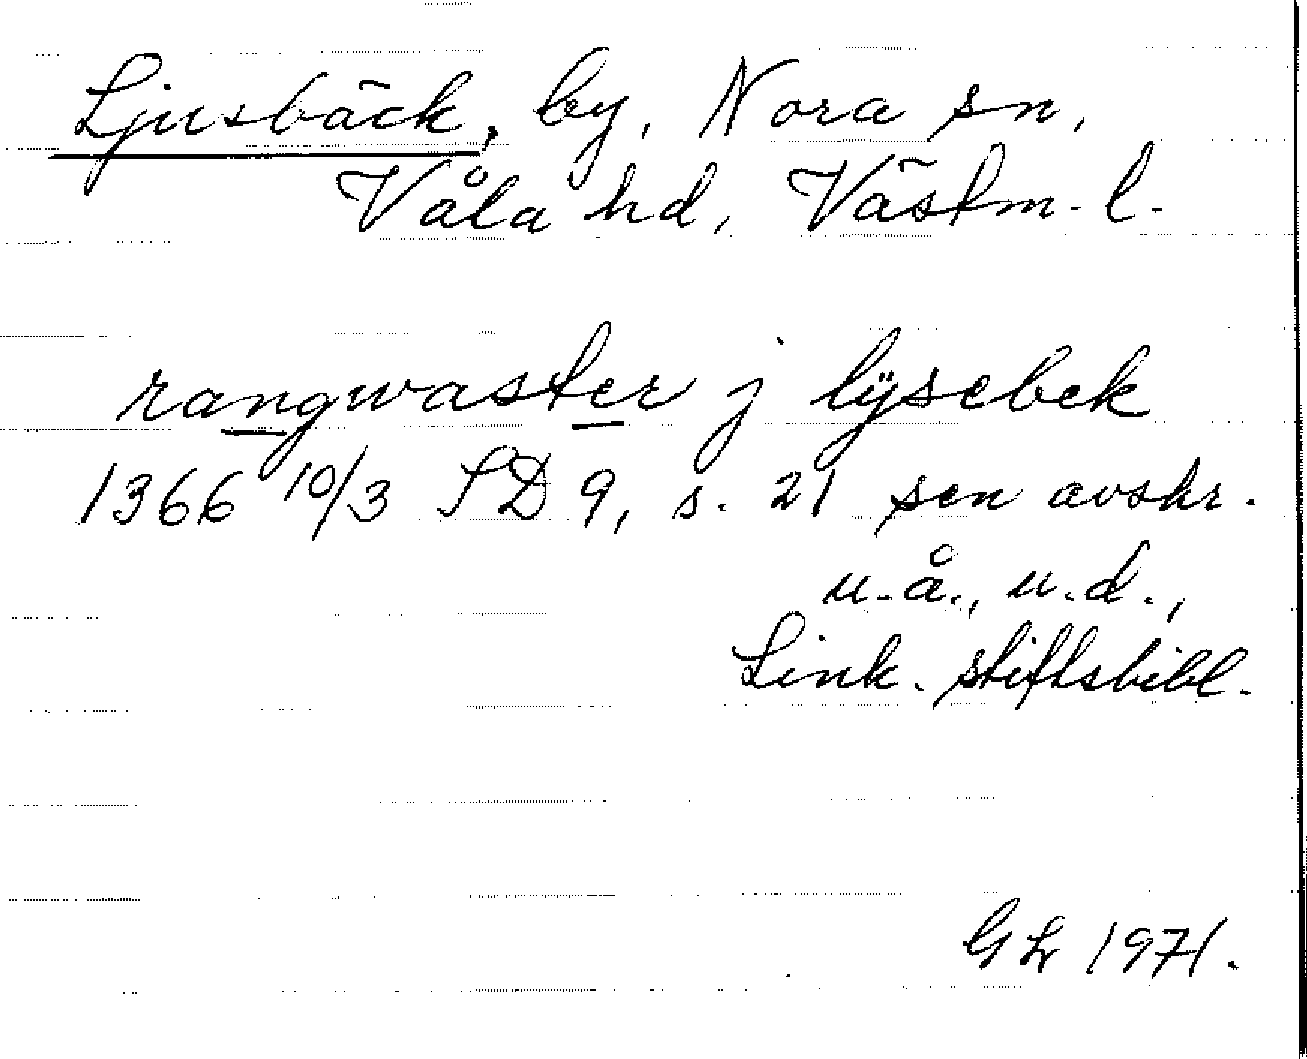 Ljusbäck, by, Nora sn,
Våla hd, Västm. l.
rangwaster j lÿsebek
1366 10/3 SD 9, s. 21 sen avskr.
u.å., u.d.,
Link. stiftsbibl.
GL 1971.